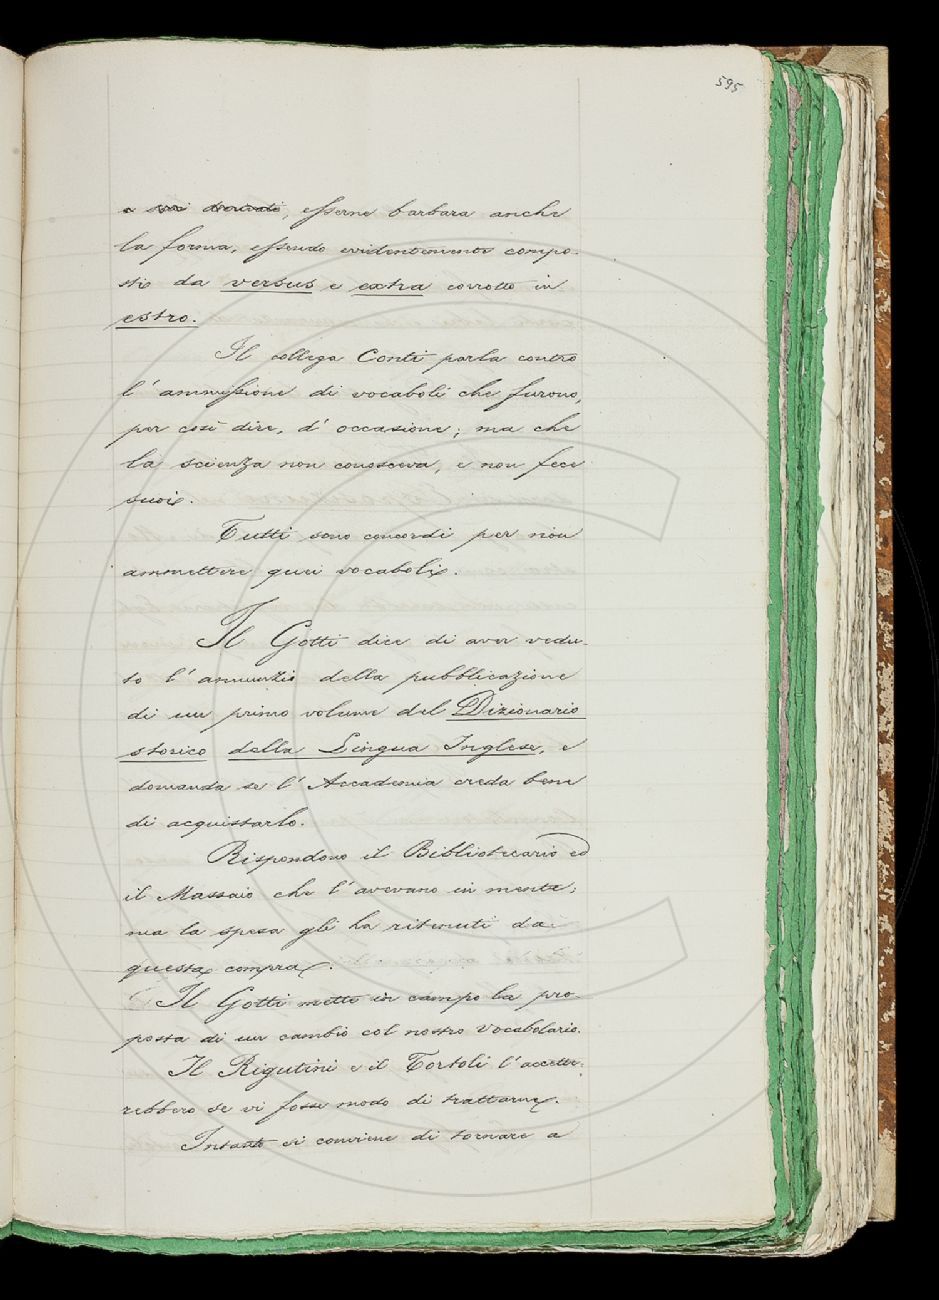 595
e suoi derivati, esserne barbara anche
la forma, essendo evidentemente compo-
sti da versus e extra corrotto in
estro.
Il collega Conti parla contro
l'ammissione di vocaboli che furono,
per così dire, d'occasione; ma che
la scienza non conosceva, e non fece
suoi.
Tutti sono concordi per non
ammettere quei vocaboli.
Il Gotti dice di aver vedu-
to l'annunzio della pubblicazione
di un primo volume del Dizionario
storico della Lingua Inglese, e
domanda se l'Accademia creda bene
di acquistarlo.
Rispondono il Bibliotecario ed
il Massaio che l'avevano in mente;
ma la spesa gli ha ritenuti da
questa compra.
Il Gotti mette in campo la pro-
posta di un cambio col nostro Vocabolario.
Il Rigutini e il Tortoli l'accette-
rebbero se vi fosse modo di trattarne.
Intanto si conviene di tornare a